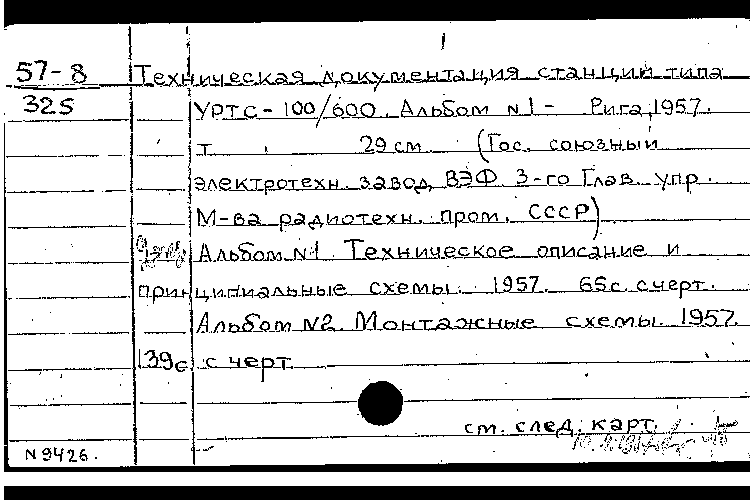 57-8
325
Техническая документация станции типа
УРТС-100/600. Альбом №1 - Рига, 1957.
т. 29 см. (Гос. союзный
электротехн. завод ВЭФ 3-го Глав. упр.
М-ва радиотехн. пром. СССР)
Альбом №1 Техническое описание и
принципиальные схемы. 1957. 65с. с черт.
Альбом №2. Монтажные схемы. 1957.
139с. с черт.
см. след. карт.
N 9426.